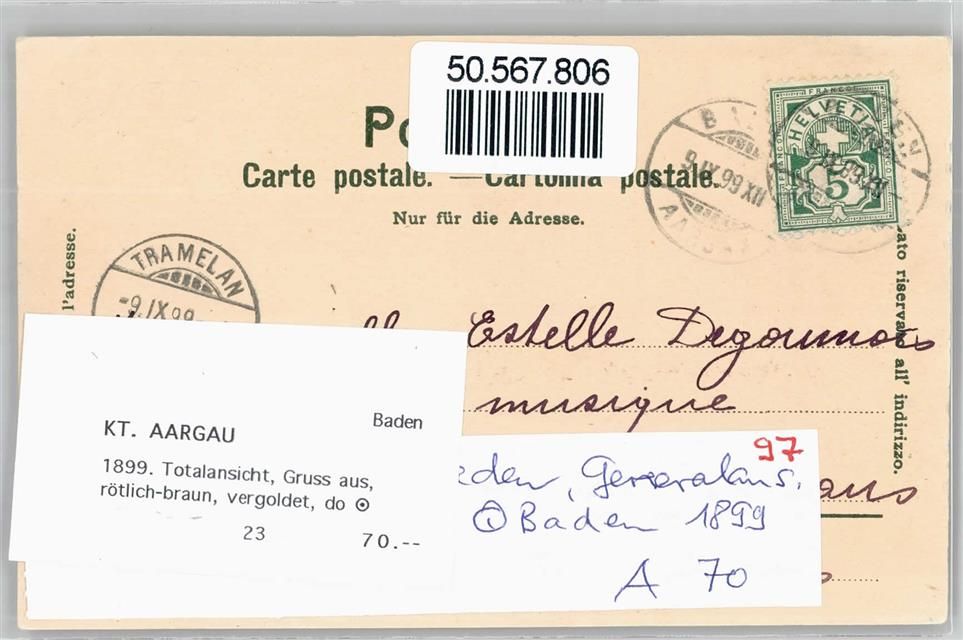 50.567.806
Carte postale. — Cartolina postale.
Nur für die Adresse.
FRANCO
HELVETIA
5
9.IX.99.XII
TRAMELAN
-9.IX.99
l'adresse.
ato riservato all' indirizzo.
Estelle Degoumois
musique
ans
KT. AARGAU
Baden
1899. Totalansicht, Gruss aus,
rötlich-braun, vergoldet, do ⊙
23
70.--
97
eden, Generalans.
⊙ Baden 1899
A 70